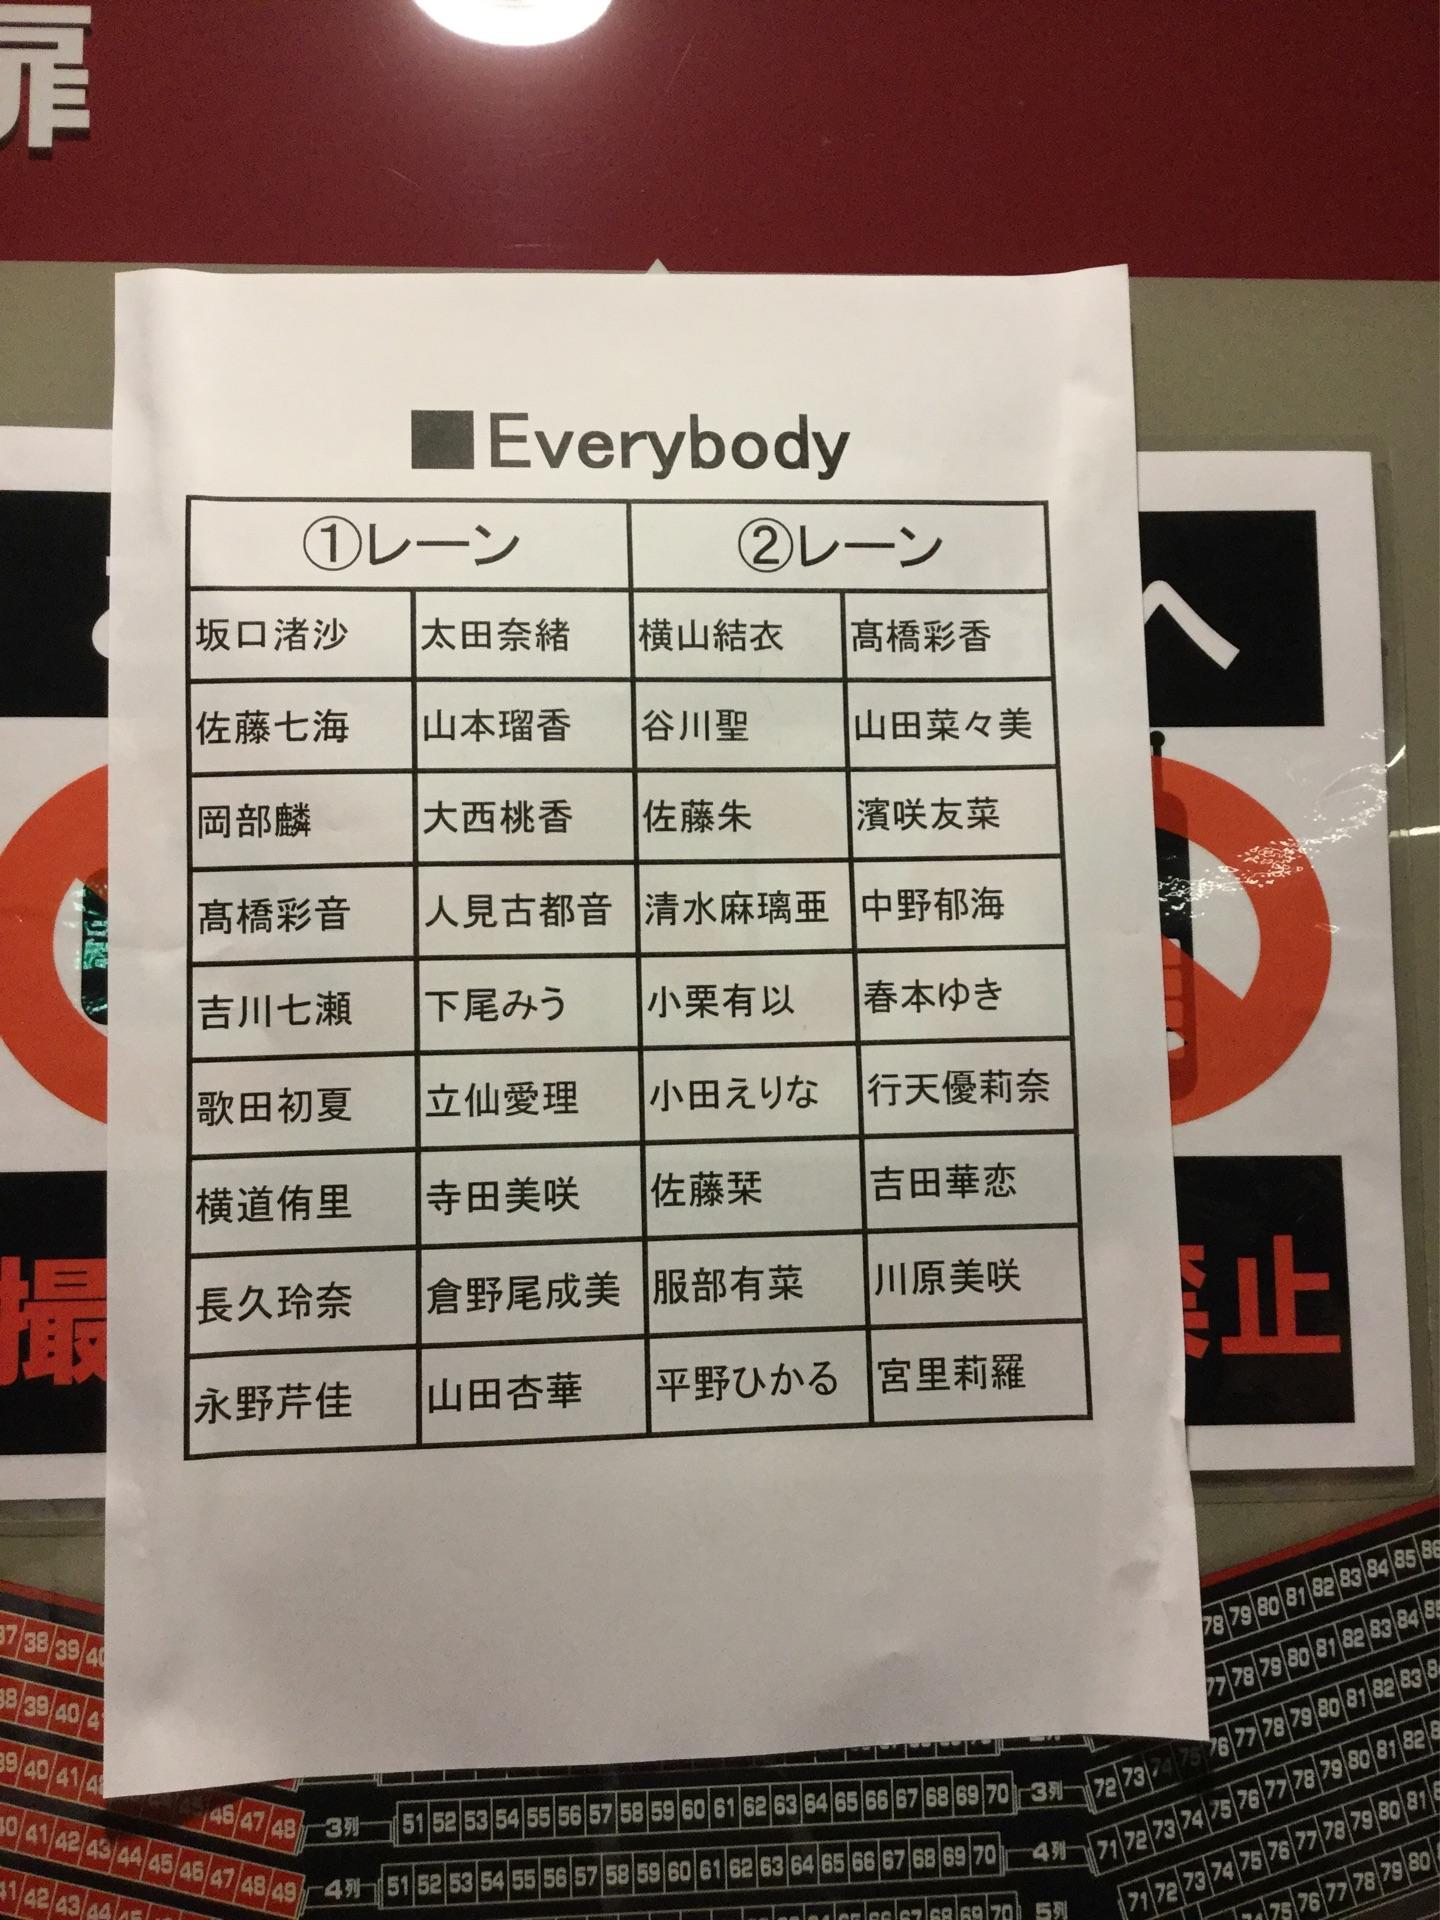 扉
■Everybody
①レーン ②レーン
坂口渚沙 太田奈緒 横山結衣 髙橋彩香
佐藤七海 山本瑠香 谷川聖 山田菜々美
岡部麟 大西桃香 佐藤朱 濵咲友菜
髙橋彩音 人見古都音 清水麻璃亜 中野郁海
吉川七瀬 下尾みう 小栗有以 春本ゆき
歌田初夏 立仙愛理 小田えりな 行天優莉奈
横道侑里 寺田美咲 佐藤栞 吉田華恋
長久玲奈 倉野尾成美 服部有菜 川原美咲
永野芹佳 山田杏華 平野ひかる 宮里莉羅
へ
撮 禁止
78 79 80 81 82 83 84 85 86
37 38 39 40
77 78 79 80 81 82 83 84 85
38 39 40 41
76 77 78 79 80 81 82 83 84
39 40 41 42 46 47 48 3列 51 52 53 54 55 56 57 58 59 60 61 62 63 64 65 66 67 68 69 70 3列 72 73 74 75
40 41 42 43 44 45 46 47 48 49 4列 51 52 53 54 55 56 57 58 59 60 61 62 63 64 65 66 67 68 69 70 4列 71 72 73 74 75 76 77 78 79 80 81 82
41 42 43 44 45 5列 71 72 73 74 75 76 77 78 79 80 81